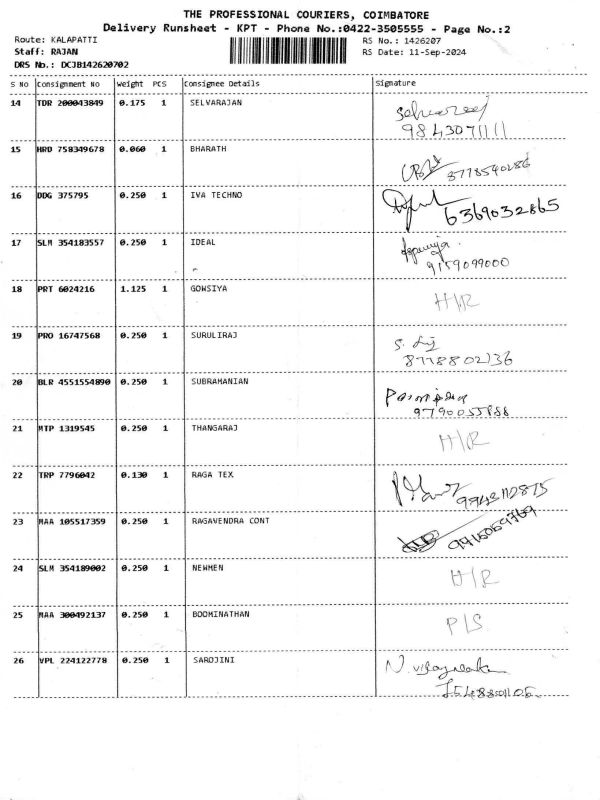 THE PROFESSIONAL COURIERS, COIMBATORE
Delivery Runsheet - KPT - Phone No.:0422-3505555 - Page No.:2
Route: KALAPATTI RS No.: 1426207
Staff: RAJAN RS Date: 11-Sep-2024
DRS No.: DCJB142620702
S No Consignment No Weight PCS Consignee Details Signature
14 TDR 200043849 0.175 1 SELVARAJAN
9843071111
15 HRD 758349678 0.060 1 BHARATH
8778540286
16 DDG 375795 0.250 1 IVA TECHNO
6369032865
17 SLM 354183557 0.250 1 IDEAL
9159099000
18 PRT 6024216 1.125 1 GOWSIYA H/R
19 PRO 16747568 0.250 1 SURULIRAJ
8778802136
20 BLR 4551554890 0.250 1 SUBRAMANIAN
21 MTP 1319545 0.250 1 THANGARAJ H/R
22 TRP 7796042 0.130 1 RAGA TEX
9943112875
23 MAA 105517359 0.250 1 RAGAVENDRA CONT
24 SLM 354189002 0.250 1 NEWMEN H/R
25 MAA 300492137 0.250 1 BOOMINATHAN P/S
26 VPL 224122778 0.250 1 SAROJINI